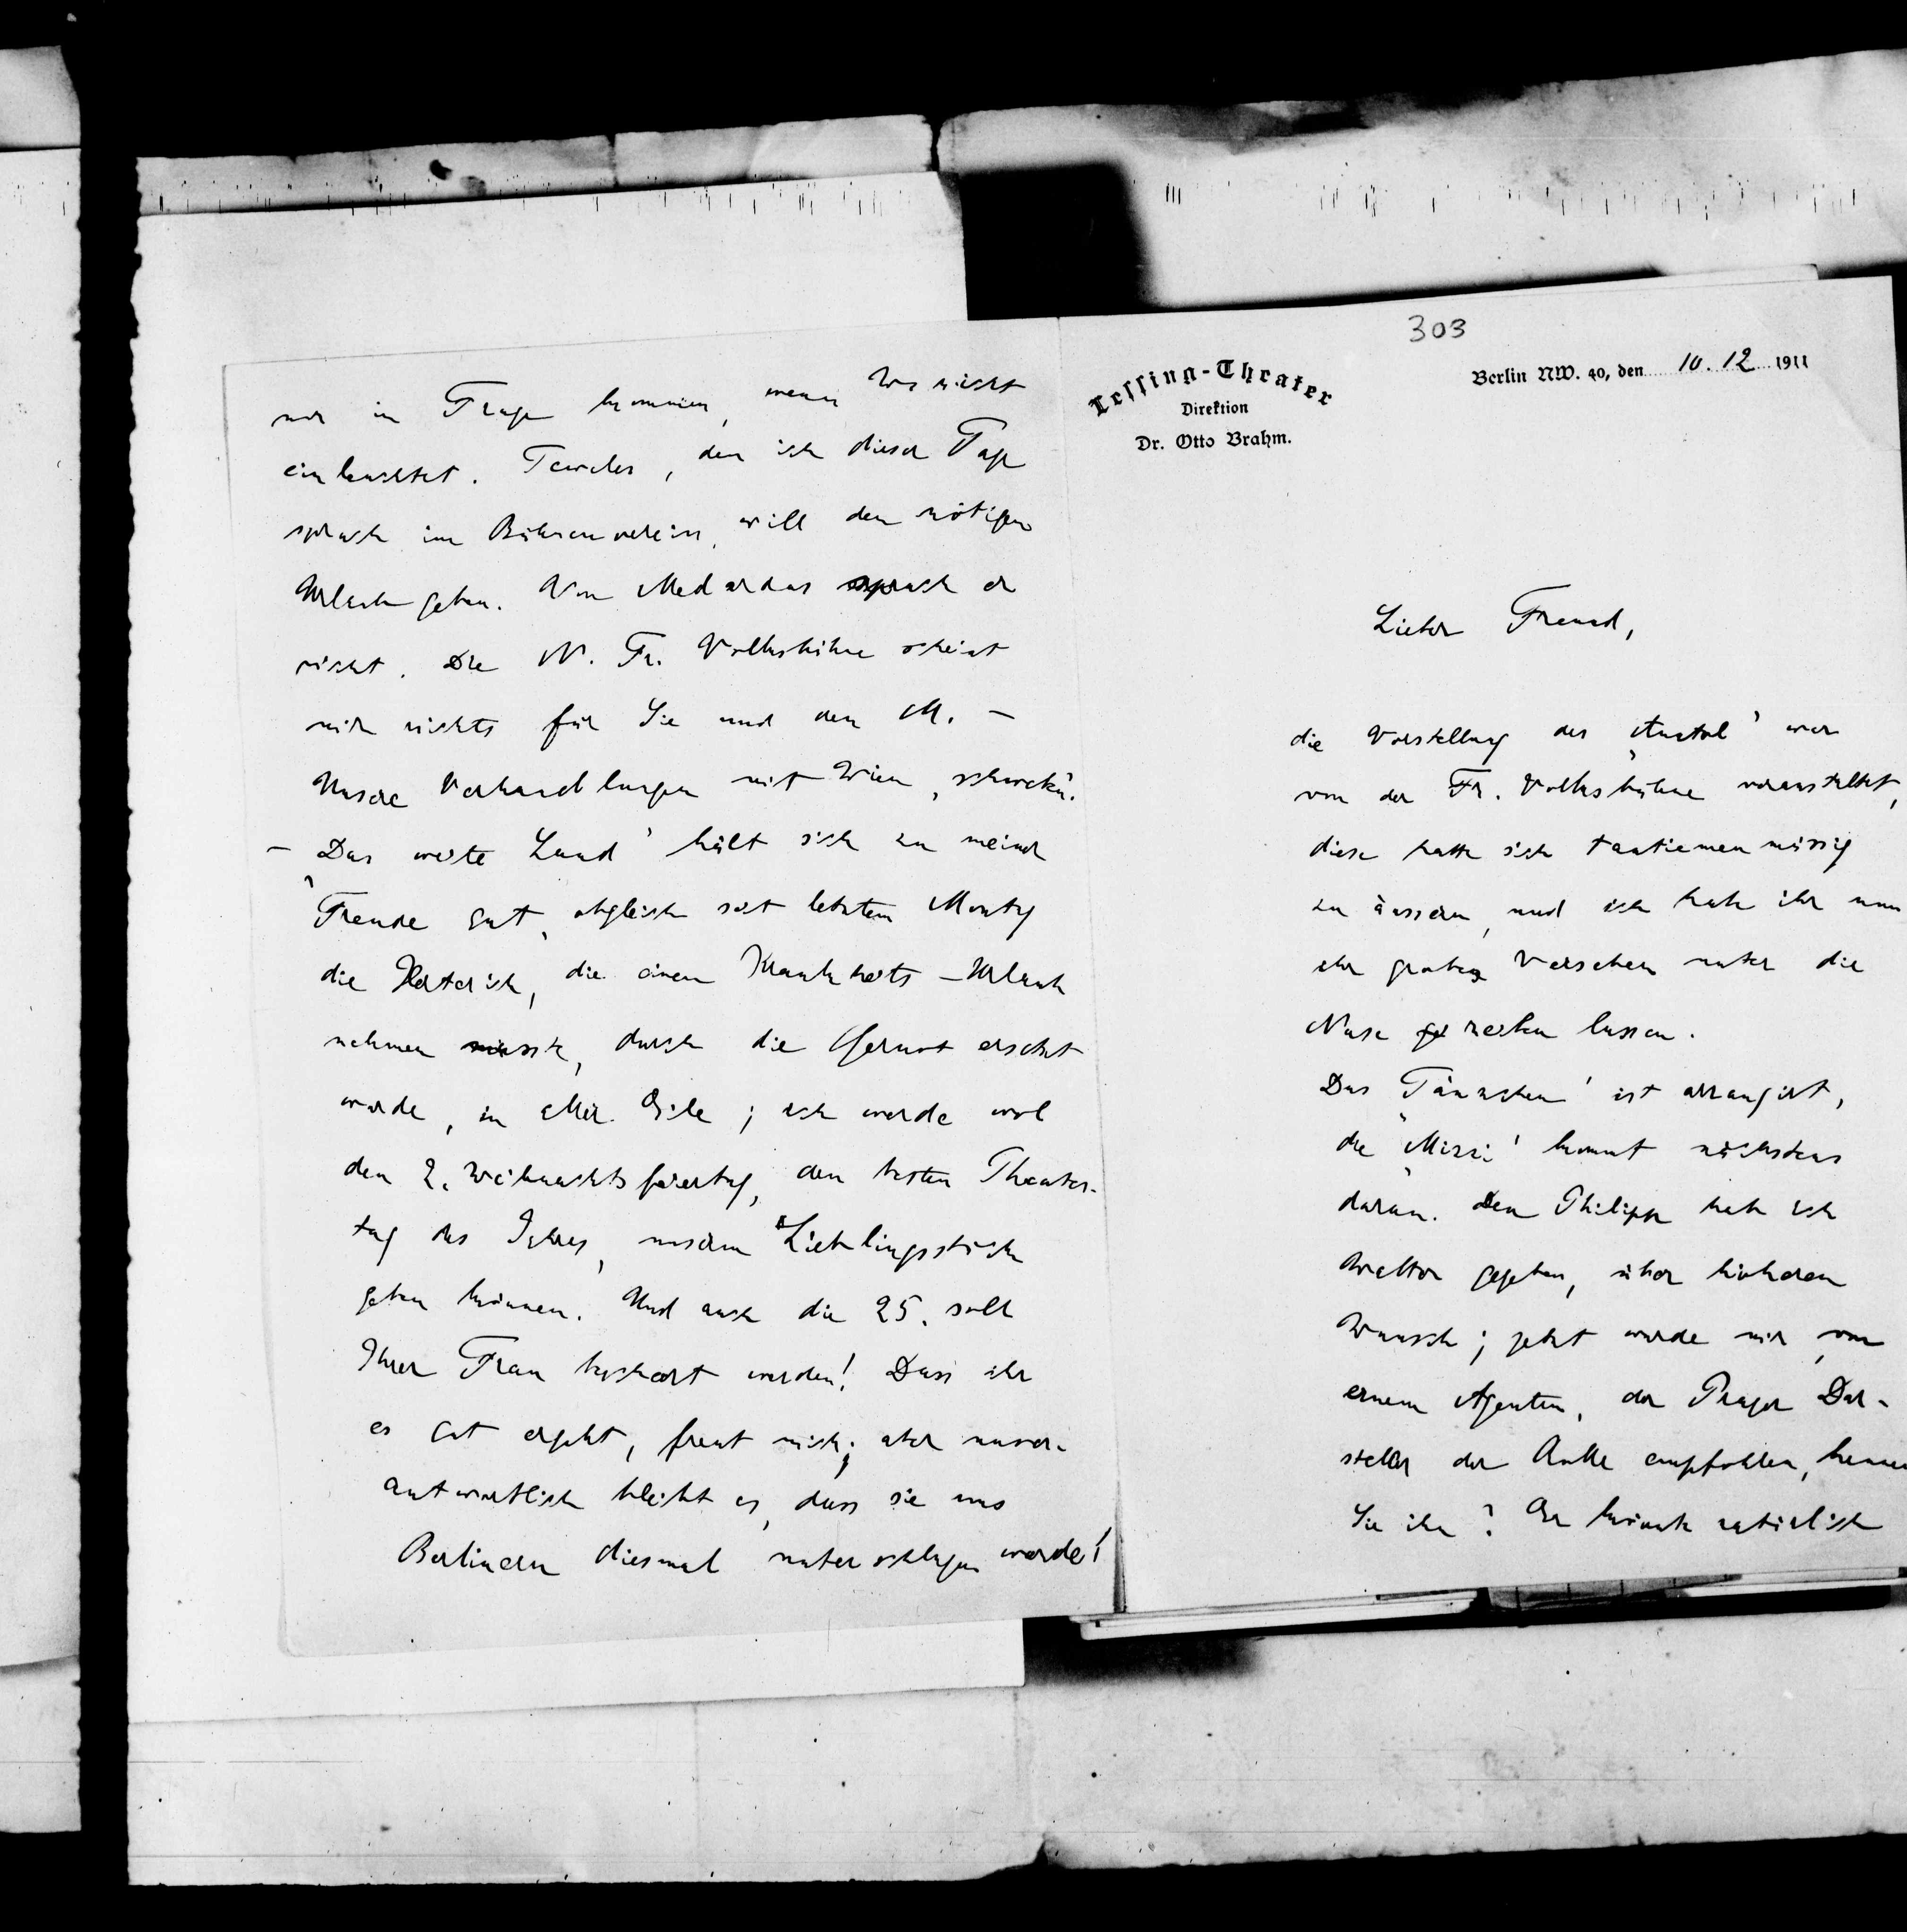 303
Lessing-Theater
Direktion
Dr. Otto Brahm.
Berlin NW. 40, den 10. 12 1911
Lieber Freund,
die Vorstellung des „Anatol‘ war
von der Fr. Volksbühne veranstaltet,
diese hatte sich tantiemenmässig
zu äussern, und ich habe ihr nun
ihr grobes Versehen unter die
Nase reiben lassen.
Das „Tänzchen‘ ist arrangirt,
die „Mizzi‘ kommt nächstens
daran. Den Philipp hab ich
gegeben, über höheren
Wunsch; jetzt wurde mir, von
einem Agenten, der Prager Dar-
steller der Rolle empfohlen, kennen
Sie ihn? Er könnte natürlich
nur in Frage kommen, wenn W. nicht
einleuchtet. Teweles, den ich dieser Tage
sprach im Bühnenverein, will den nötigen
Urlaub geben. Von Medardus sprach er
nicht. Die N. Fr. Volksbühne scheint
mir nichts für Sie und den M. –
Unsere Verhandlungen mit Wien „schweben‘.
– „Das weite Land‘ hält sich zu meiner
Freude gut, obgleich seit letztem Montag
die Herterich, die einen Krankheits-Urlaub
nehmen musste, durch die Gernot ersetzt
wurde, in aller Eile; ich werde wol
den 2. Weihnachtsfeiertag, den besten Theater-
tag des Jahres, unserm Lieblingsstück
geben können. Und auch die 25. soll
Ihrer Frau beschert werden! Dass ihr
es gut ergeht, freut mich; aber unver-
antwortlich bleibt es, dass sie uns
Berlinern diesmal unterschlagen wurde!